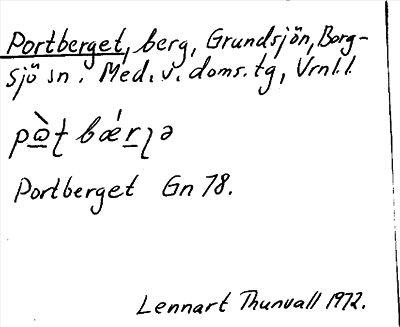 Portberget, berg, Grundsjön, Borg-
sjö sn. Med. v. doms. tg, Vrnl. l.
Portberget Gn 78.
Lennart Thunvall 1972.